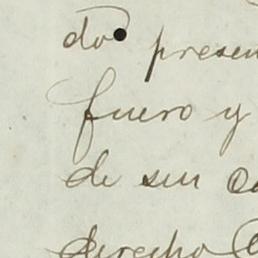 do presen
fuero y
de sin
derecho